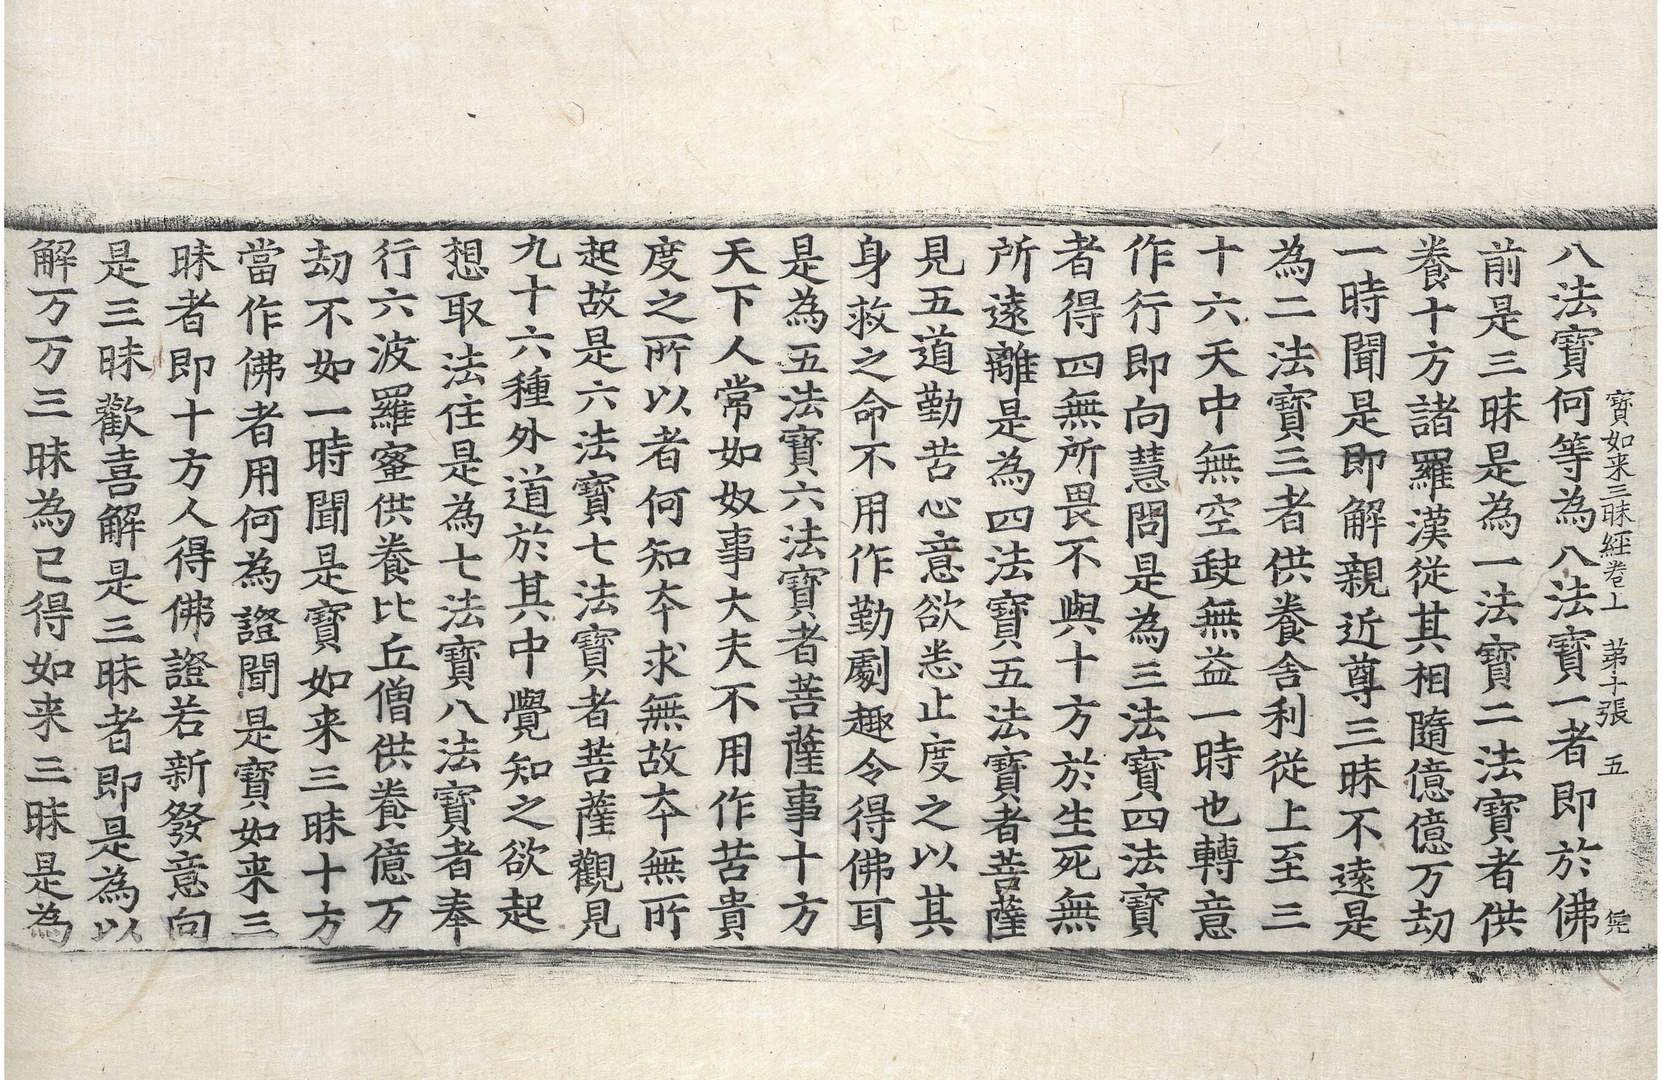 寶如来三昧經卷上　第十張　五　㒯
八法寶何等為八法寶一者即於佛
前是三昧是為一法寶二法寶者供
養十方諸羅漢從其相隨億億万劫
一時聞是即解親近尊三昧不遠是
為二法寶三者供養舍利從上至三
十六天中無空缺無益一時也轉意
作行即向慧問是為三法寶四法寶
者得四無所畏不與十方於生死無
所遠離是為四法寶五法寶者菩薩
見五道勤苦心意欲悉止度之以其
身救之命不用作勤劇趣令得佛耳
是為五法寶六法寶者菩薩事十方
天下人常如奴事大夫不用作苦貴
度之所以者何知夲求無故夲無所
起故是六法寶七法寶者菩薩觀見
九十六種外道於其中覺知之欲起
想取法住是為七法寶八法寶者奉
行六波羅蜜供養比丘僧供養億万
劫不如一時聞是寶如来三昧十方
當作佛者用何為證聞是寶如来三
昧者即十方人得佛證若新發意向
是三昧歡喜解是三昧者即是為以
解万万三昧為已得如来三昧是為